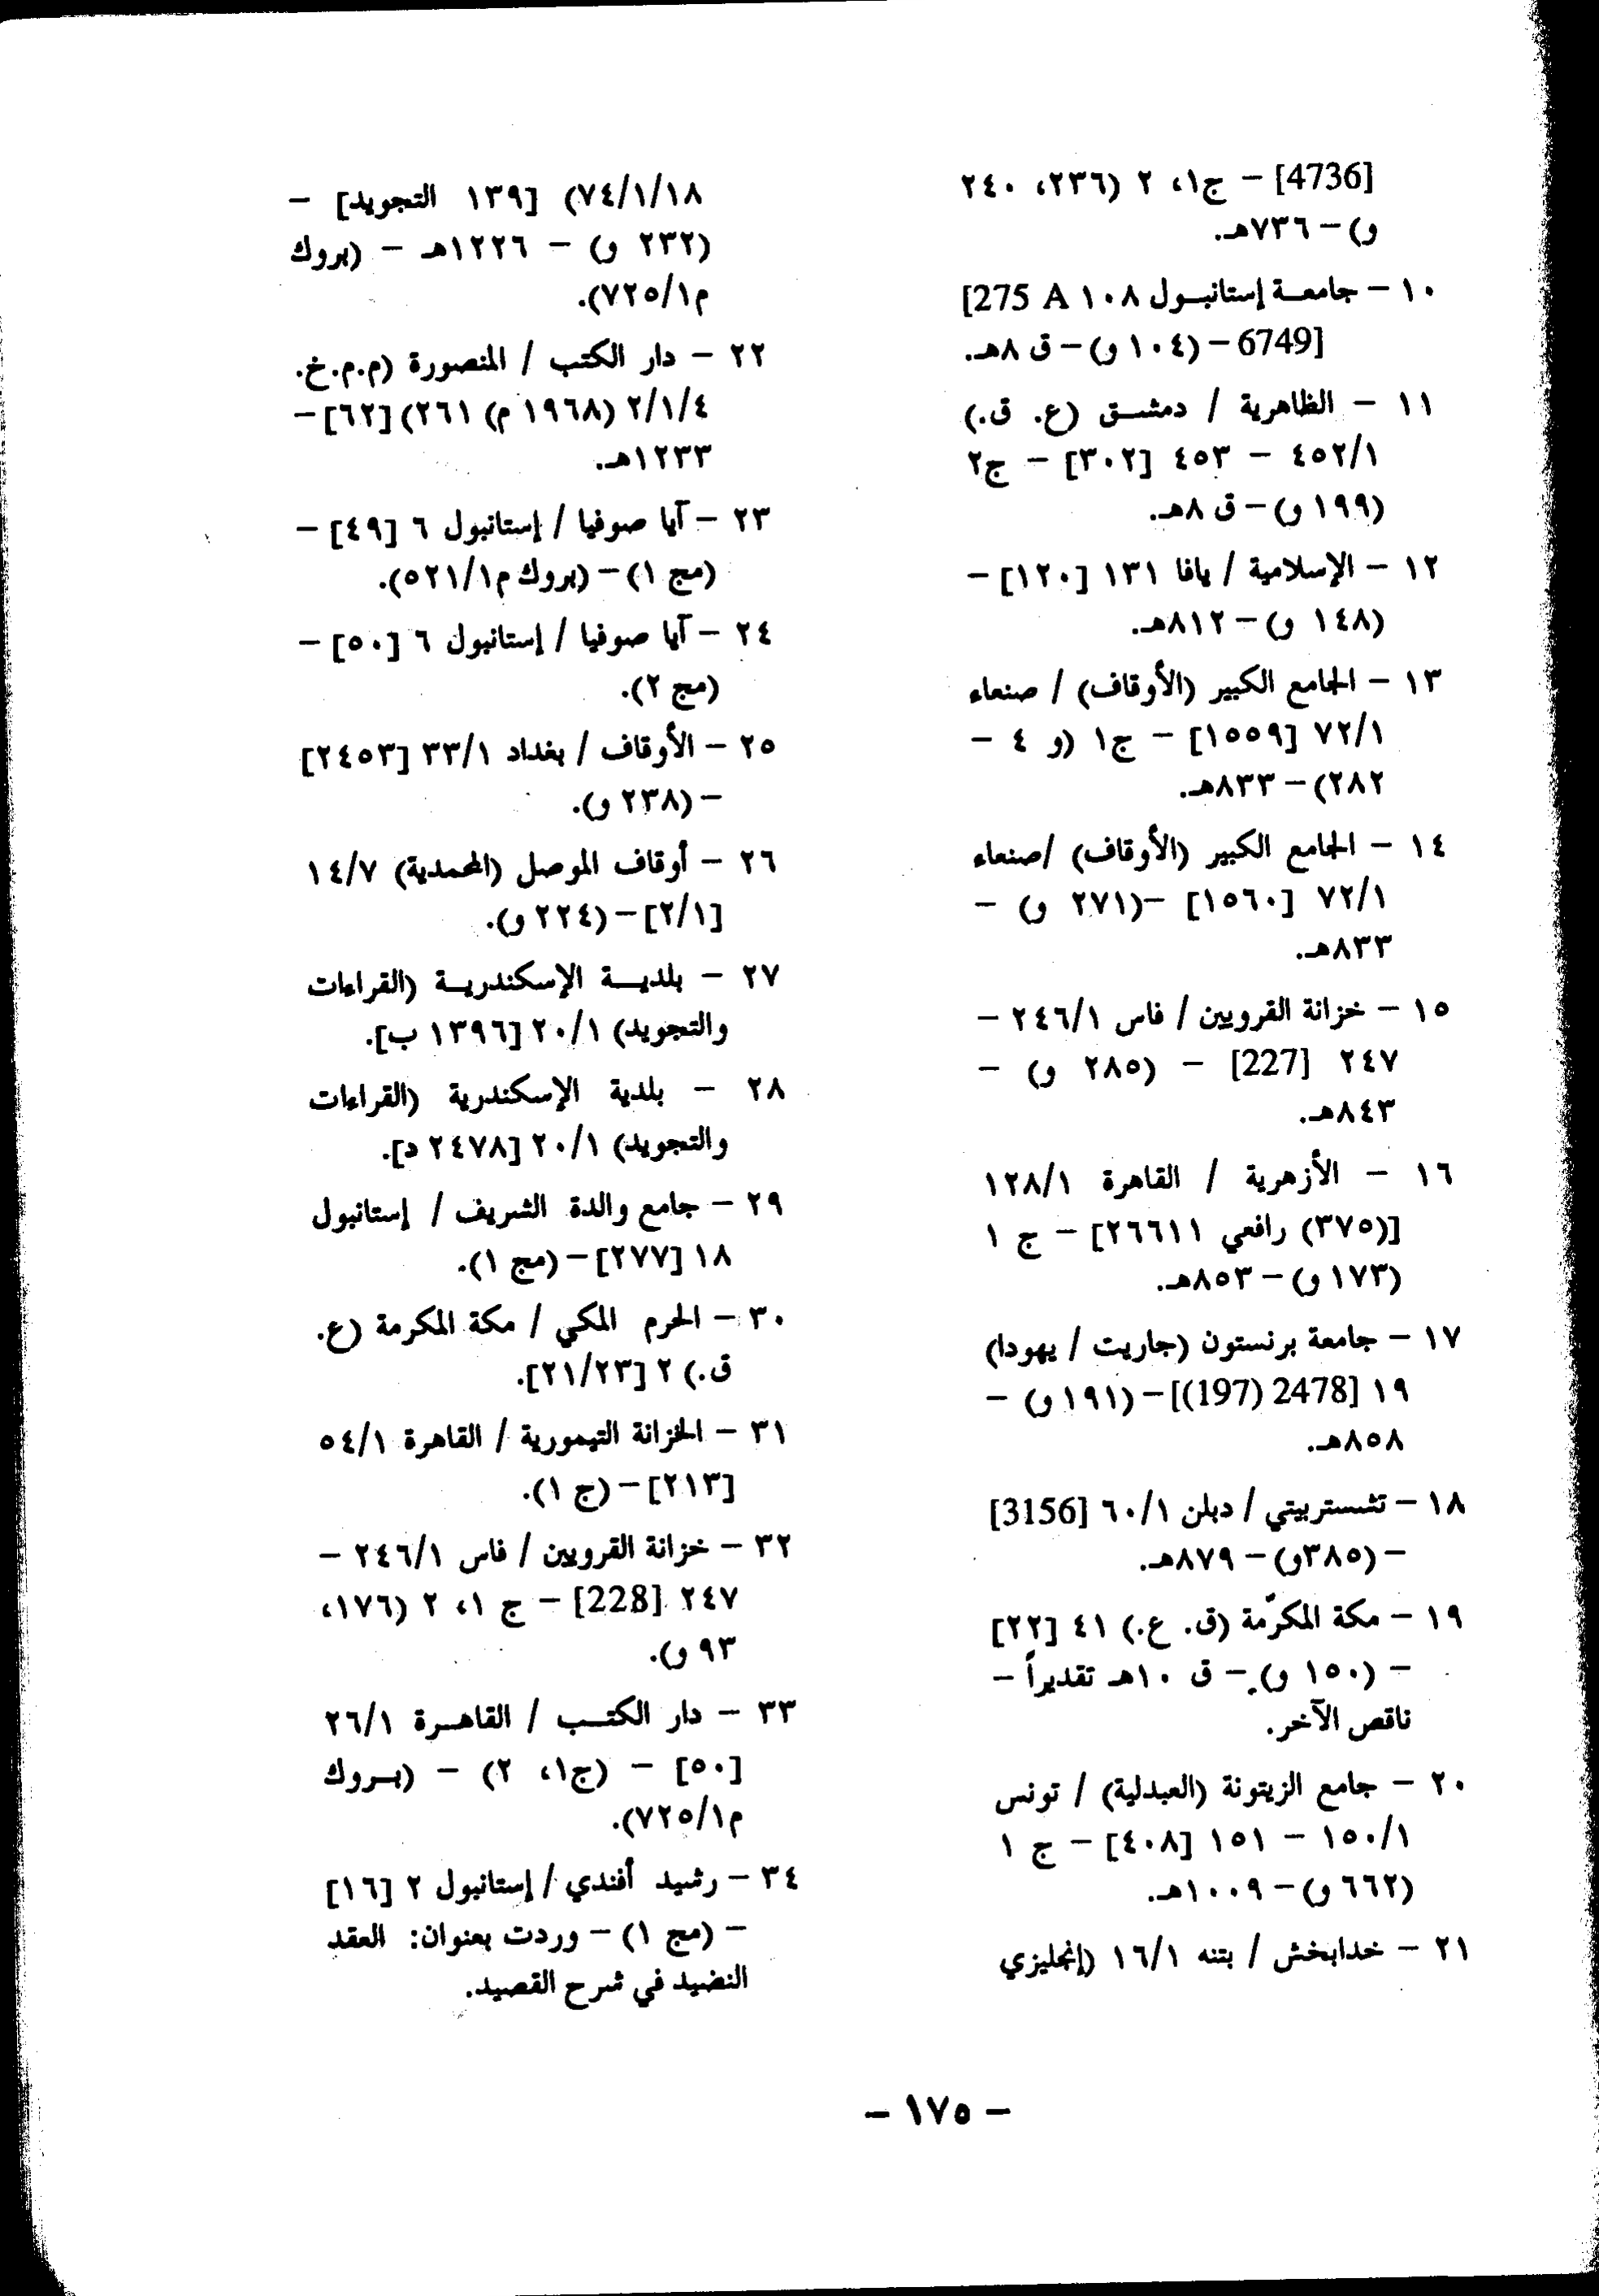 [4736] – ج١، ٢ (٢٣٦، ٢٤٠
و) – ٧٣٦هـ.
١٠ – جامعـة إستانبـول ١٠٨ 275 A]
[6749 – (١٠٤ و) – ق ٨هـ.
١١ – الظاهرية / دمشـق (ع. ق.)
٤٥٢/١ – ٤٥٣ [٣٠٢] – ج٢
(١٩٩ و) – ق ٨هـ.
١٢ – الإسلامية / يافا ١٣١ [١٢٠] –
(١٤٨ و) – ٨١٢هـ.
١٣ – الجامع الكبير (الأوقاف) / صنعاء
٧٢/١ [١٥٥٩] – ج١ (و ٤ –
٢٨٢) – ٨٣٣هـ.
١٤ – الجامع الكبير (الأوقاف) /صنعاء
٧٢/١ [١٥٦٠] –(٢٧١ و) –
٨٣٣هـ.
١٥ – خزانة القرويين / فاس ٢٤٦/١ –
٢٤٧ [227] – (٢٨٥ و) –
٨٤٣هـ.
١٦ – الأزهرية / القاهرة ١٢٨/١
[(٣٧٥) رافعي ٢٦٦١١] – ج ١
(١٧٣ و) – ٨٥٣هـ.
١٧ – جامعة برنستون (جاريت / يهودا)
١٩ [2478 (197)] – (١٩١ و) –
٨٥٨هـ.
١٨ – تشستربيتي / دبلن ٦٠/١ [3156]
– (٣٨٥و) – ٨٧٩هـ.
١٩ – مكة المكرّمة (ق. ع.) ٤١ [٢٢]
– (١٥٠ و) – ق ١٠هـ تقديراً –
ناقص الآخر.
٢٠ – جامع الزيتونة (العبدلية) / تونس
١٥٠/١ – ١٥١ [٤٠٨] – ج ١
(٦٦٢ و) – ١٠٠٩هـ.
٢١ – خدابخش / بتنه ١٦/١ (إنجليزي
٧٤/١/١٨) [١٣٩ التجويد] –
(٢٣٢ و) – ١٢٢٦هـ – (بروك
م٧٢٥/١).
٢٢ – دار الكتب / المنصورة (م.م.خ.
٢/١/٤ (١٩٦٨ م) ٢٦١) [٦٢] –
١٢٣٣هـ.
٢٣ – آيا صوفيا / إستانبول ٦ [٤٩] –
(مج ١) – (بروك م٥٢١/١).
٢٤ – آيا صوفيا / إستانبول ٦ [٥٠] –
(مج ٢).
٢٥ – الأوقاف / بغداد ٣٣/١ [٢٤٥٣]
– (٢٣٨ و).
٢٦ – أوقاف الموصل (المحمدية) ١٤/٧
[٢/١] – (٢٢٤ و).
٢٧ – بلديـة الإسكندريـة (القراءات
والتجويد) ٢٠/١ [١٣٩٦ ب].
٢٨ – بلدية الإسكندرية (القراءات
والتجويد) ٢٠/١ [٢٤٧٨ د].
٢٩ – جامع والدة الشريف / إستانبول
١٨ [٢٧٧] – (مج ١).
٣٠ – الحرم المكي / مكة المكرمة (ع.
ق.) ٢ [٢١/٢٣].
٣١ – الخزانة التيمورية / القاهرة ٥٤/١
[٢١٣] – (ج ١).
٣٢ – خزانة القرويين / فاس ٢٤٦/١ –
٢٤٧ [228] – ج ١، ٢ (١٧٦،
٩٣ و).
٣٣ – دار الكتـب / القاهـرة ٢٦/١
[٥٠] – (ج١، ٢) – (بـروك
م٧٢٥/١).
٣٤ – رشيد أفندي / إستانبول ٢ [١٦]
– (مج ١) – وردت بعنوان: العقد
النضيد في شرح القصيد.
– ١٧٥ –